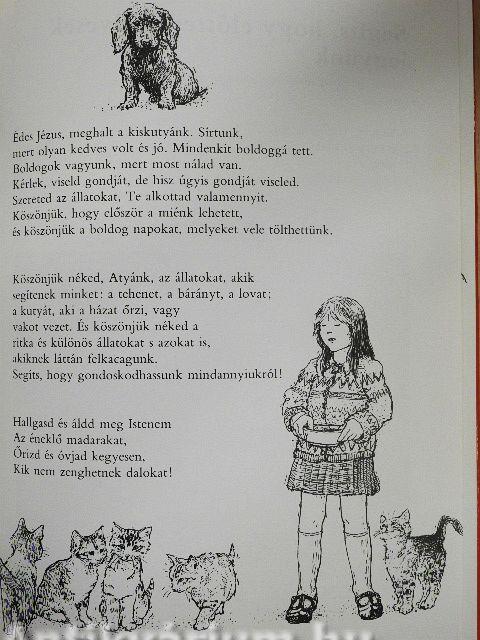 Édes Jézus, meghalt a kiskutyánk. Sírtunk,
mert olyan kedves volt és jó. Mindenkit boldoggá tett.
Boldogok vagyunk, mert most nálad van.
Kérlek, viseld gondját, de hisz úgyis gondját viseled.
Szereted az állatokat, Te alkottad valamennyit.
Köszönjük, hogy először a miénk lehetett,
és köszönjük a boldog napokat, melyeket vele tölthettünk.
Köszönjük néked, Atyánk, az állatokat, akik
segítenek minket: a tehenet, a bárányt, a lovat;
a kutyát, aki a házat őrzi, vagy
vakot vezet. És köszönjük néked a
ritka és különös állatokat s azokat is,
akiknek láttán felkacagunk.
Segíts, hogy gondoskodhassunk mindannyiukról!
Hallgasd és áldd meg Istenem
Az éneklő madarakat,
Őrizd és óvjad kegyesen,
Kik nem zenghetnek dalokat!